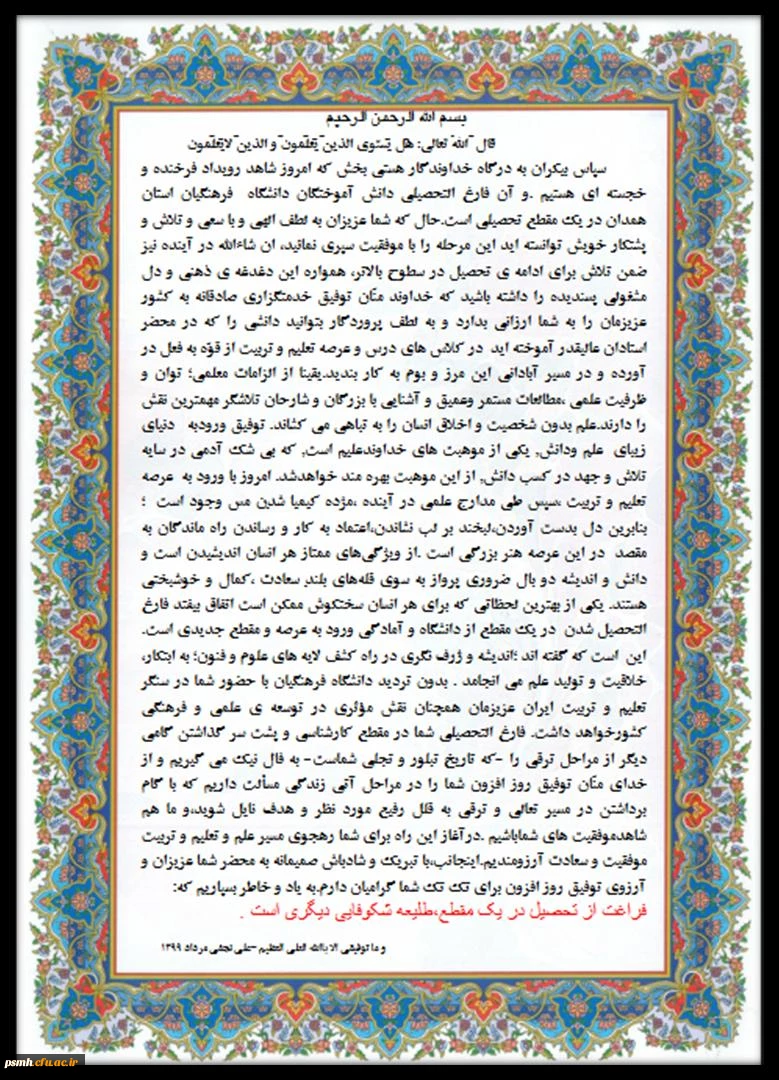 بسم الله الرحمن الرحیم
قال الله تعالی: هل یستوی الذین یعلمون و الذین لایعلمون
سپاس بیکران به درگاه خداوندگار هستی بخش که امروز شاهد رویداد فرخنده و
خجسته ای هستیم .و آن فارغ التحصیلی دانش آموختگان دانشگاه فرهنگیان استان
همدان در یک مقطع تحصیلی است.حال که شما عزیزان به لطف الهی و با سعی و تلاش و
پشتکار خویش توانسته اید این مرحله را با موفقیت سپری نمائید، ان شاءالله در آینده نیز
ضمن تلاش برای ادامه ی تحصیل در سطوح بالاتر، همواره این دغدغه ی ذهنی و دل
مشغولی پسندیده را داشته باشید که خداوند منّان توفیق خدمتگزاری صادقانه به کشور
عزیزمان را به شما ارزانی بدارد و به لطف پروردگار بتوانید دانشی را که در محضر
استادان عالیقدر آموخته اید در کلاس های درس و عرصه تعلیم و تربیت از قوّه به فعل در
آورده و در مسیر آبادانی این مرز و بوم به کار بندید.یقینا از الزامات معلمی؛ توان و
ظرفیت علمی ،مطالعات مستمر وعمیق و آشنایی با بزرگان و شارحان تلاشگر مهمترین نقش
را دارند.علم بدون شخصیت و اخلاق انسان را به تباهی می کشاند. توفیق ورودبه دنیای
زیبای علم ودانش, یکی از موهبت های خداوندعلیم است, که بی شک آدمی در سایه
تلاش و جهد در کسب دانش, از این موهبت بهره مند خواهدشد. امروز با ورود به عرصه
تعلیم و تربیت ،سپس طی مدارج علمی در آینده ،مژده کیمیا شدن مس وجود است ؛
بنابرین دل بدست آوردن،لبخند بر لب نشاندن،اعتماد به کار و رساندن راه ماندگان به
مقصد در این عرصه هنر بزرگی است .از ویژگی‌های ممتاز هر انسان اندیشیدن است و
دانش و اندیشه دو بال ضروری پرواز به سوی قله‌های بلند سعادت ،کمال و خوشبختی
هستند. یکی از بهترین لحظاتی که برای هر انسان سختکوش ممکن است اتفاق بیفتد فارغ
التحصیل شدن در یک مقطع از دانشگاه و آمادگی ورود به عرصه و مقطع جدیدی است.
این است که گفته اند ؛اندیشه و ژرف نگری در راه کشف لایه های علوم و فنون؛ به ابتکار،
خلاقیت و تولید علم می انجامد . بدون تردید دانشگاه فرهنگیان با حضور شما در سنگر
تعلیم و تربیت ایران عزیزمان همچنان نقش مؤثری در توسعه ی علمی و فرهنگی
کشورخواهد داشت. فارغ التحصیلی شما در مقطع کارشناسی و پشت سر گذاشتن گامی
دیگر از مراحل ترقی را -که تاریخ تبلور و تجلی شماست- به فال نیک می گیریم و از
خدای منّان توفیق روز افزون شما را در مراحل آتی زندگی مسألت داریم که با گام
برداشتن در مسیر تعالی و ترقی به قلل رفیع مورد نظر و هدف نایل شوید،و ما هم
شاهدموفقیت های شماباشیم .درآغاز این راه برای شما رهجوی مسیر علم و تعلیم و تربیت
موفقیت و سعادت آرزومندیم.اینجانب،با تبریک و شادباش صمیمانه به محضر شما عزیزان و
آرزوی توفیق روز افزون برای تک تک شما گرامیان دارم.به یاد و خاطر بسپاریم که:
فراغت از تحصیل در یک مقطع،طلیعه شکوفایی دیگری است .
و ما توفیقی الا باالله العلی العظیم -علی نجفی مرداد ۱۳۹۹
psmh.cfu.ac.ir